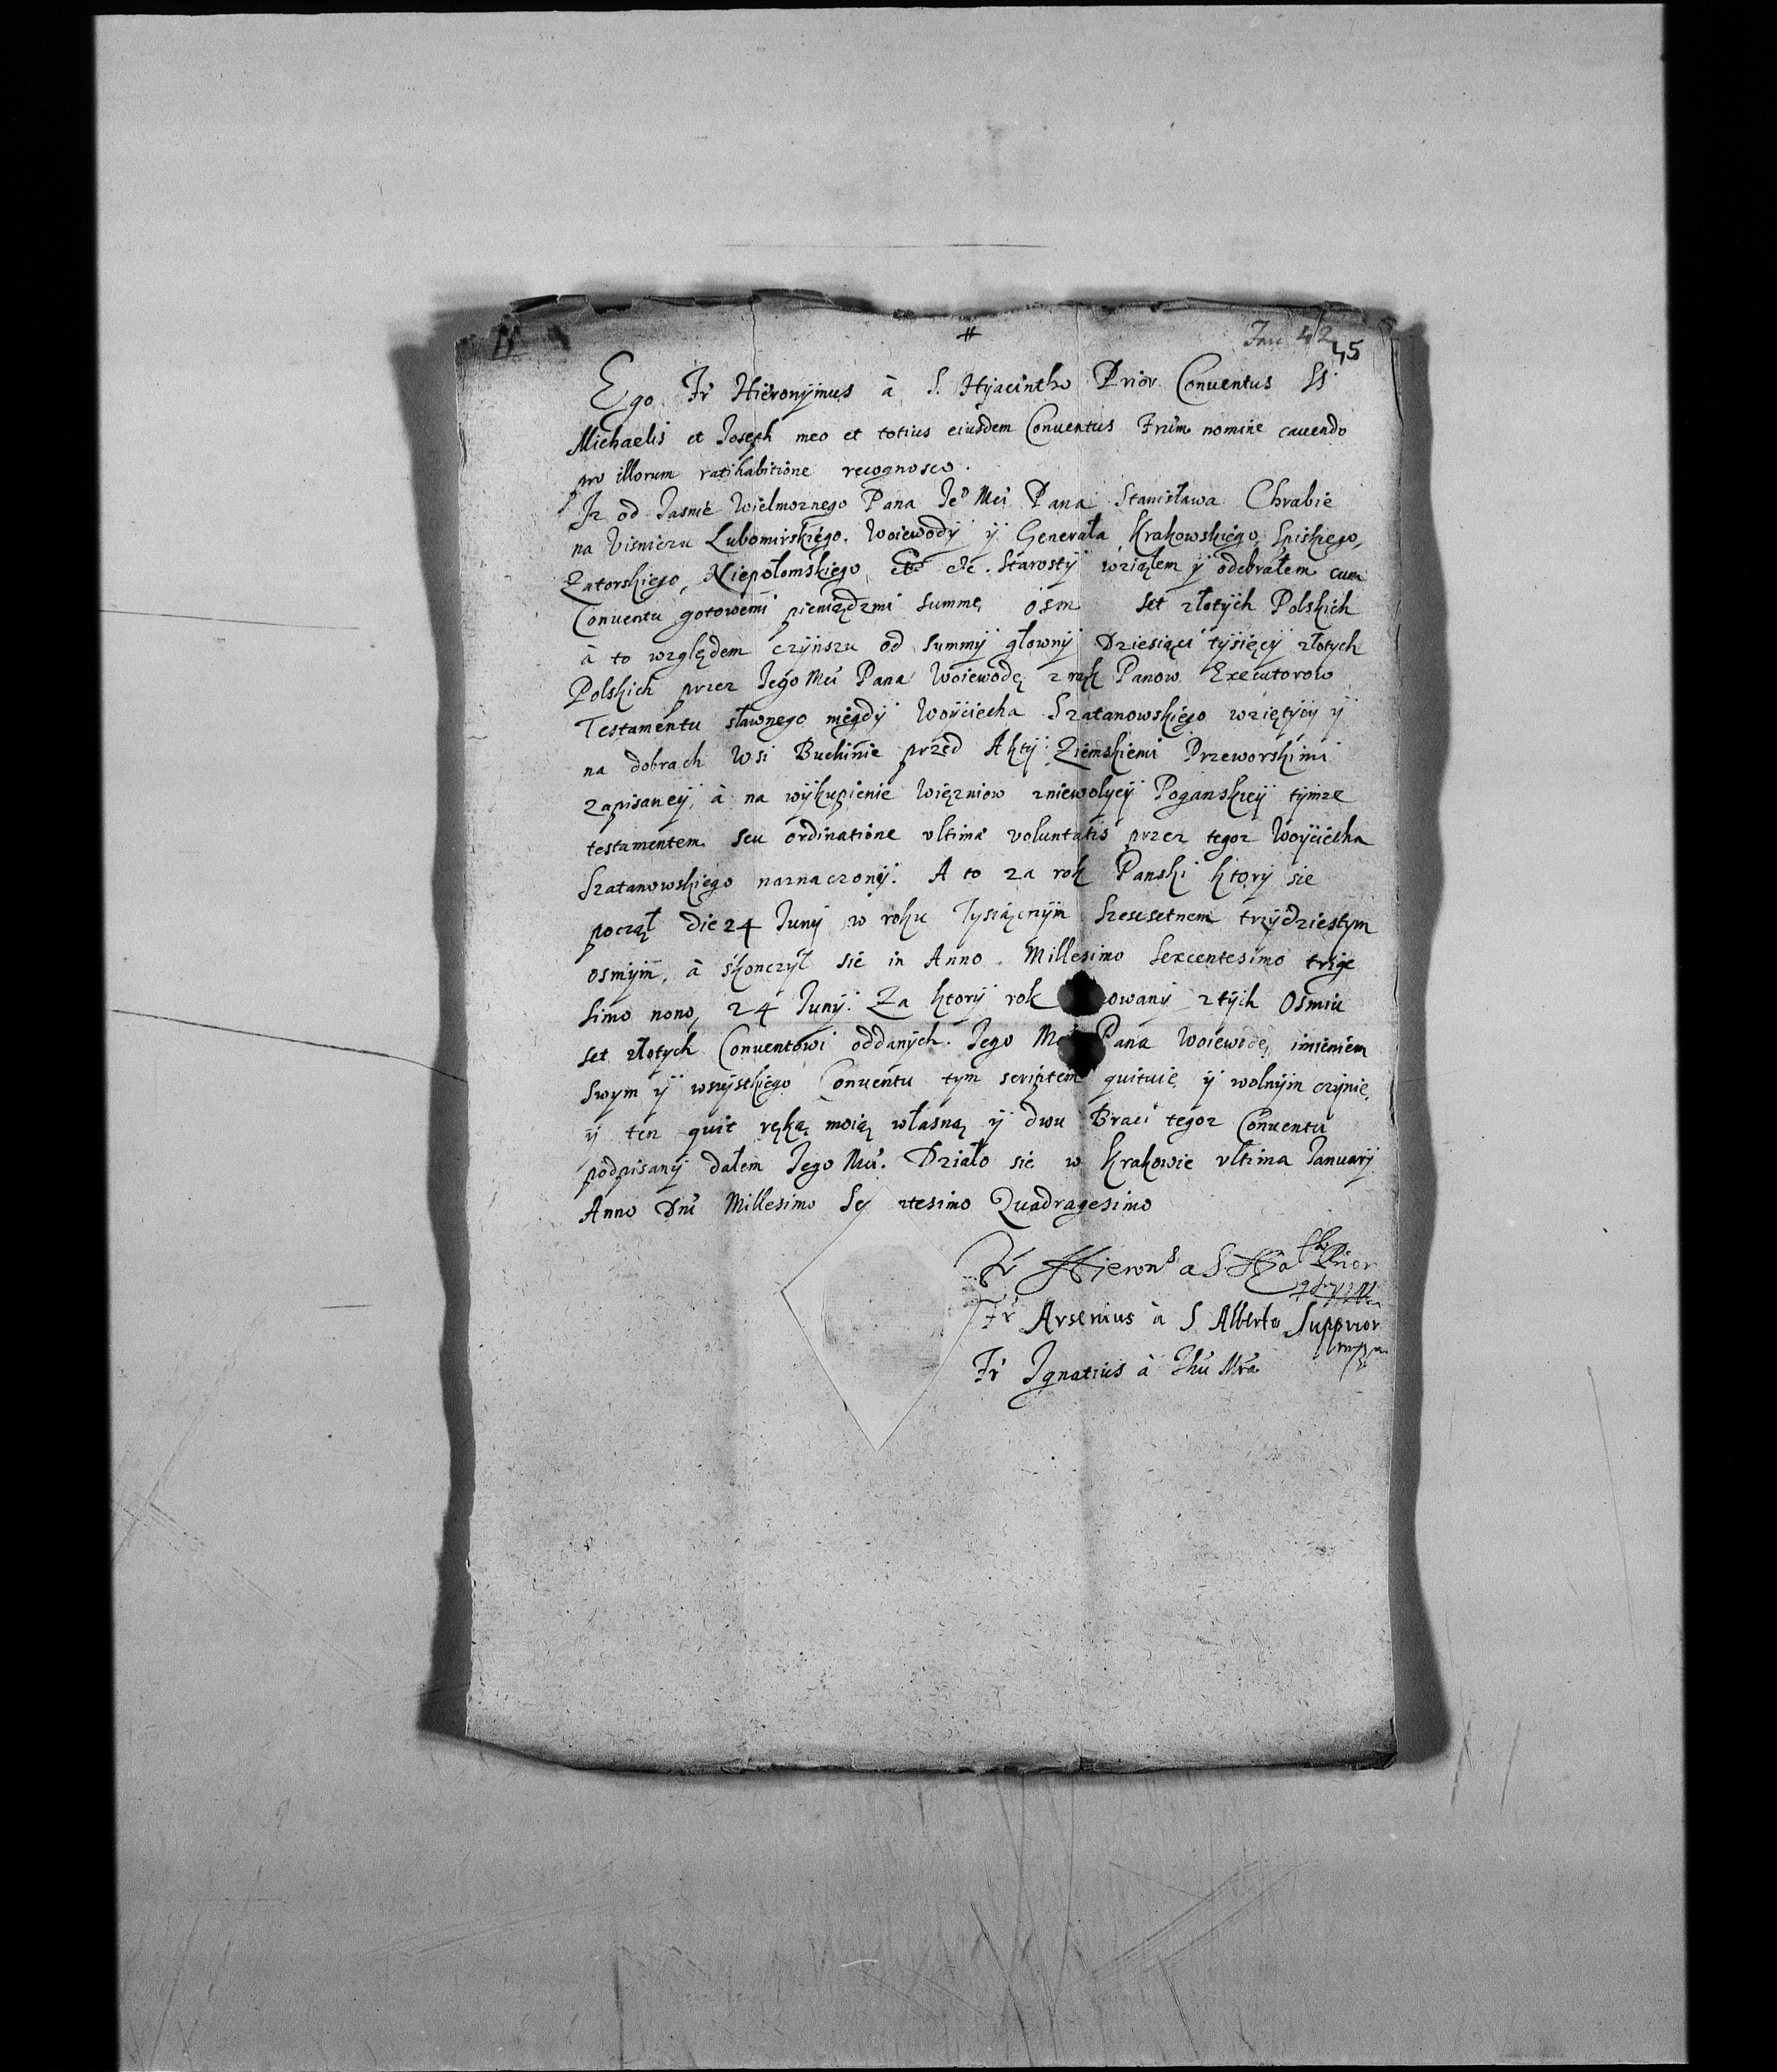 45
Ego Fr Hieronymus à S. Hyacintho Prior Conuentus SS.
Michaelis et Joseph meo et totius eiusdem Conuentus Frum nomine cauendo
pro illorum ratihabitione recognosco.
Iz od Jasnie Wielmoznego Pana Je° Mci Pana Stanisława Chrabie
na Visniczu Lubomirskiego. Woiewody ÿ Generała Krakowskiego, Spiskiego,
Zatorskiego, Niepołomskiego etc etc. Starosty wziąłem ÿ odebrałem cum
Conuentu gotowemi pieniądzmi summę osm set złotych Polskich
à to względem czynszu od summy głowny Dziesiąci tysięcy złotych
Polskich przez Jego Mci Pana Woiewodę z rąk Panow Executorow
Testamentu sławnego niegdy Woyciecha Szatanowskiego wziętycy ÿ
na dobrach Wsi Buchinie przed Akty Ziemskiemi Przeworskimi
zapisaney, à na wykupienie Więzniow zniewolycy Poganskiey tymze
testamentem seu ordinatione vltima voluntatis przez tegoz Woyciecha
Szatanowskiego naznaczony. A to za rok Panski ktory sie
począł die 24 Juny w roku Tysiącznym Szescsetnem trzydziestym
osmym, à skonczył sie in Anno. Millesimo Sexcentesimo trige
simo nono, 24 Juny. Za ktory rok owany z tych Osmiu
set złotych Conuentowi oddanych. Jego Mci Pana Woiewodę, imieniem
swym ÿ wszystkiego Conuentu tym scriptem quituię ÿ wolnym czynię,
ÿ ten quit ręką moią własną ÿ dwu Braci tegoz Conuentu
podpisany dałem Jego Mci. Działo sie w Krakowie vltima Januarÿ
Anno Dni Millesimo Se ntesimo Quadragesimo
Fr Hieron^s a S Hia^tho Prior
Fr Arsenius à S Alberto Supprior
mpp
Fr Ignatius à Jhu Mra